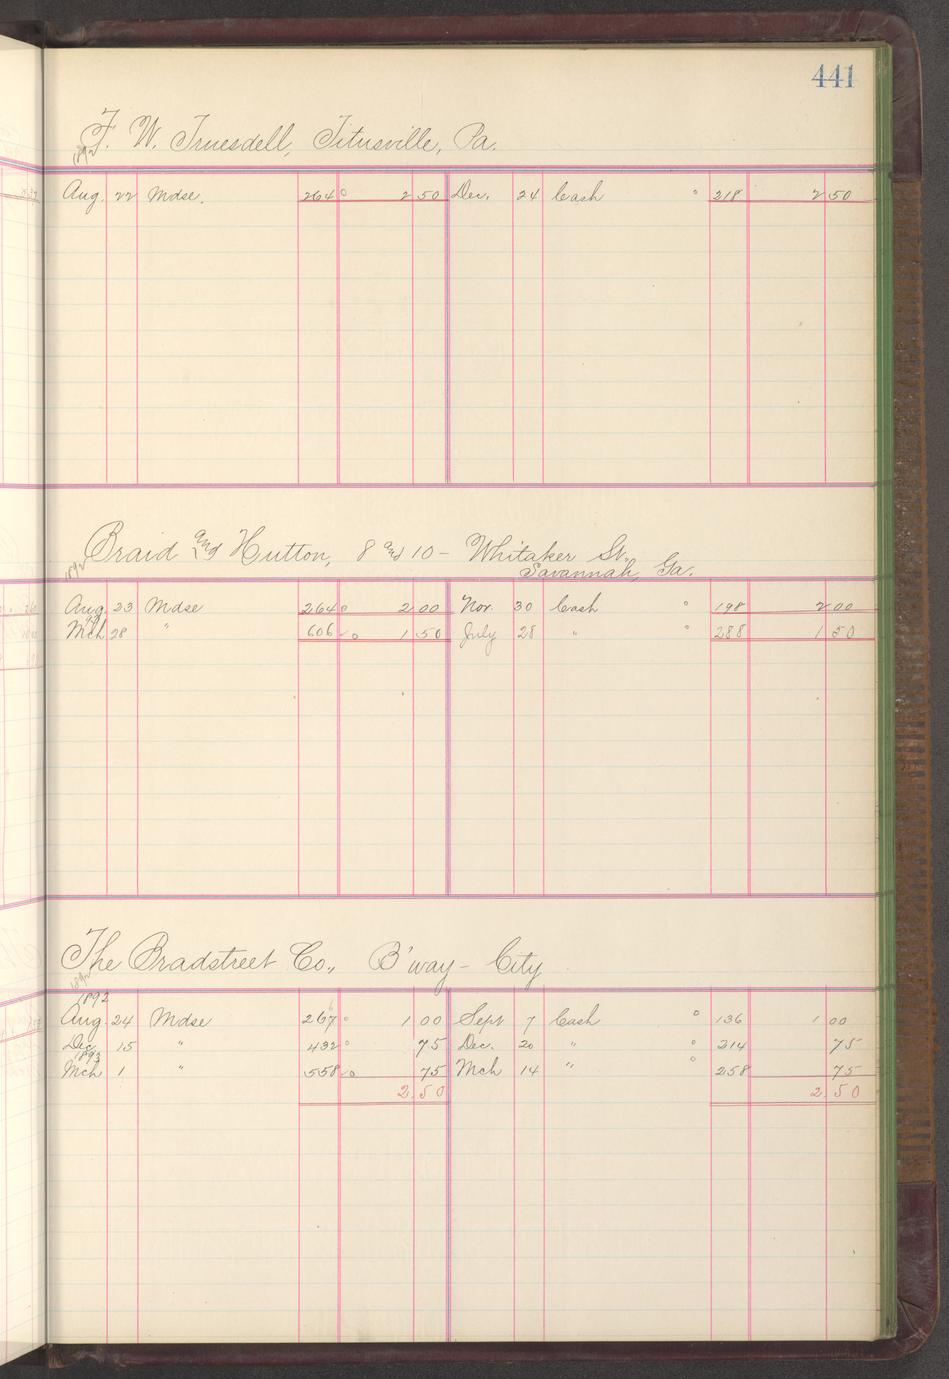 441
F. W. Truesdell, Titusville, Pa.
1892
Aug. 22 Mdse. 264 2 50 Dec. 24 Cash 218 2 50
Braid and Hutton, 8 and 10 - Whitaker St.
Savannah, Ga.
1892
Aug 23 Mdse 264 2 00 Nov. 30 Cash 198 2 00
93
Mch 28 " 606 1 50 July 28 " 288 1 50
The Bradstreet Co., B'way - City
1892
1892
Aug. 24 Mdse 267 1 00 Sept 7 Cash 136 1 00
Dec. 15 " 432 75 Dec. 20 " 214 75
1893
Mch 1 " 558 75 Mch 14 " 258 75
2 50 2 50